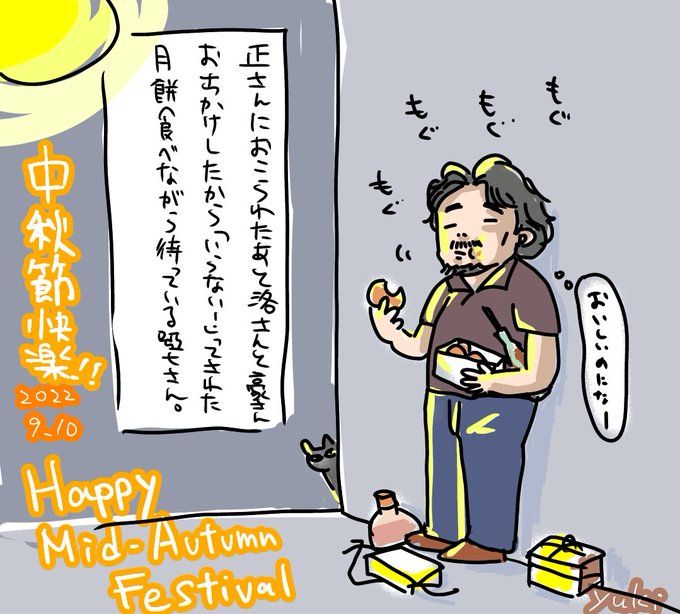 正さんにおこられたあと洛さんと豪さん
おでかけしたから「いらないー」ってされた
月餅食べながら待っている啞七さん。
もぐ
もぐ
もぐ
もぐ
おいしいのになー
中秋節快楽!!
2022
9.10
Happy
Mid-Autumn
Festival
yuki